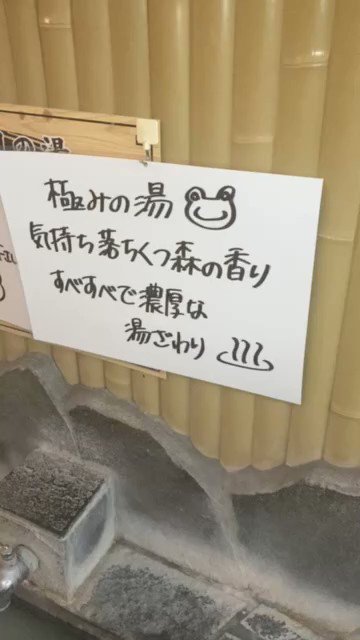 の湯
極みの湯
気持ち落ちくつ森の香り
すべすべで濃厚な
湯ざわり